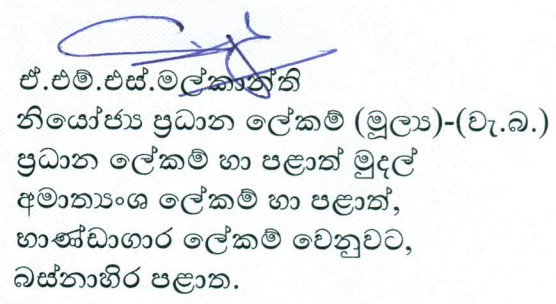 ඒ.එම්.එස්.මල්කාන්ති
නියෝජ්‍ය ප්‍රධාන ලේකම් (මූල්‍ය)-(වැ.බ.)
ප්‍රධාන ලේකම් හා පළාත් මුදල්
අමාත්‍යංශ ලේකම් හා පළාත්,
භාණ්ඩාගාර ලේකම් වෙනුවට,
බස්නාහිර පළාත.